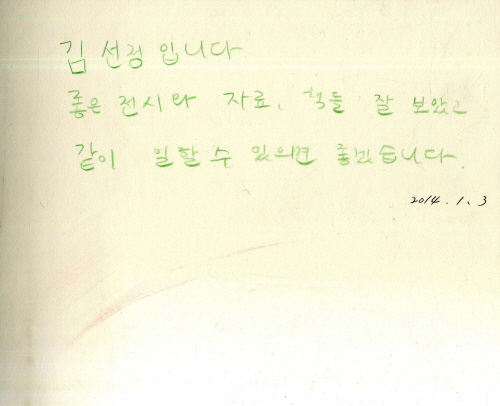 김선정입니다
좋은 전시와 자료, 책들 잘 보았고
같이 일할 수 있으면 좋겠습니다.
2014.1.3